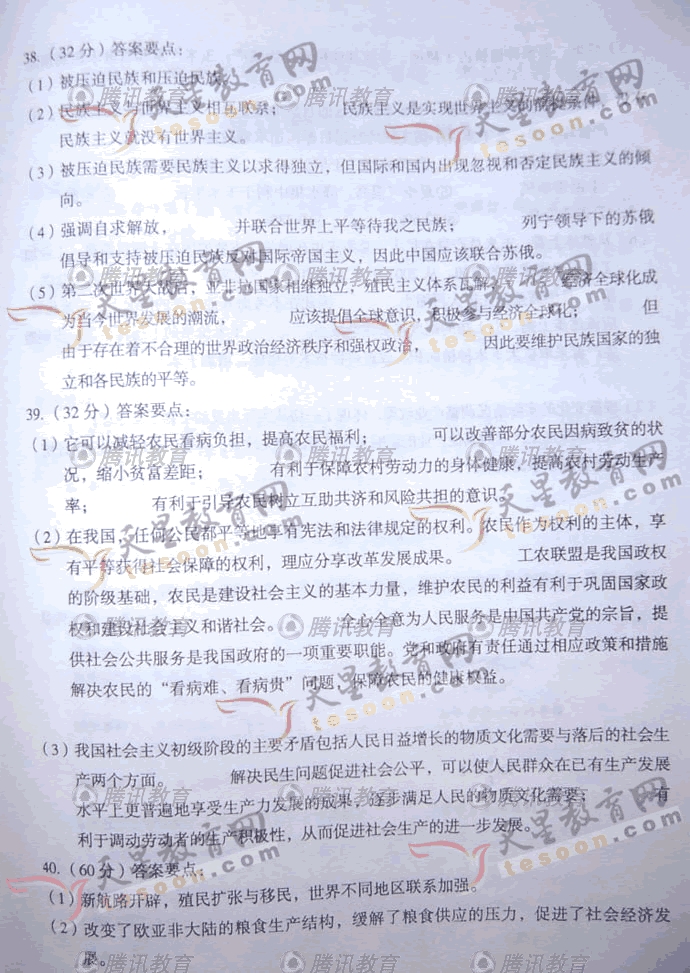 38.（32 分）答案要点：
（1）被压迫民族和压迫民族。
（2）民族主义与世界主义相互联系； 民族主义是实现世界主义的前提条件，
民族主义就没有世界主义。
（3）被压迫民族需要民族主义以求得独立，但国际和国内出现忽视和否定民族主义的倾
向。
（4）强调自求解放， 并联合世界上平等待我之民族； 列宁领导下的苏俄
倡导和支持被压迫民族反对国际帝国主义，因此中国应该联合苏俄。
（5）第二次世界大战后，亚非拉国家相继独立，殖民主义体系瓦解。 经济全球化成
为当今世界发展的潮流， 应该提倡全球意识，积极参与经济全球化； 但
由于存在着不合理的世界政治经济秩序和强权政治， 因此要维护民族国家的独
立和各民族的平等。
39.（32 分）答案要点：
（1）它可以减轻农民看病负担，提高农民福利； 可以改善部分农民因病致贫的状
况，缩小贫富差距； 有利于保障农村劳动力的身体健康，提高农村劳动生产
率； 有利于引导农民树立互助共济和风险共担的意识。
（2）在我国，任何公民都平等地享有宪法和法律规定的权利。农民作为权利的主体，享
有平等获得社会保障的权利，理应分享改革发展成果。 工农联盟是我国政权
的阶级基础，农民是建设社会主义的基本力量，维护农民的利益有利于巩固国家政
权和建设社会主义和谐社会。 全心全意为人民服务是中国共产党的宗旨，提
供社会公共服务是我国政府的一项重要职能。党和政府有责任通过相应政策和措施
解决农民的“看病难、看病贵”问题，保障农民的健康权益。
（3）我国社会主义初级阶段的主要矛盾包括人民日益增长的物质文化需要与落后的社会生
产两个方面。 解决民生问题促进社会公平，可以使人民群众在已有生产发展
水平上更普遍地享受生产力发展的成果，逐步满足人民的物质文化需要； 有
利于调动劳动者的生产积极性，从而促进社会生产的进一步发展。
40.（60 分）答案要点：
（1）新航路开辟，殖民扩张与移民，世界不同地区联系加强。
（2）改变了欧亚非大陆的粮食生产结构，缓解了粮食供应的压力，促进了社会经济发
展。
腾讯教育
天星教育网
tesoon.com